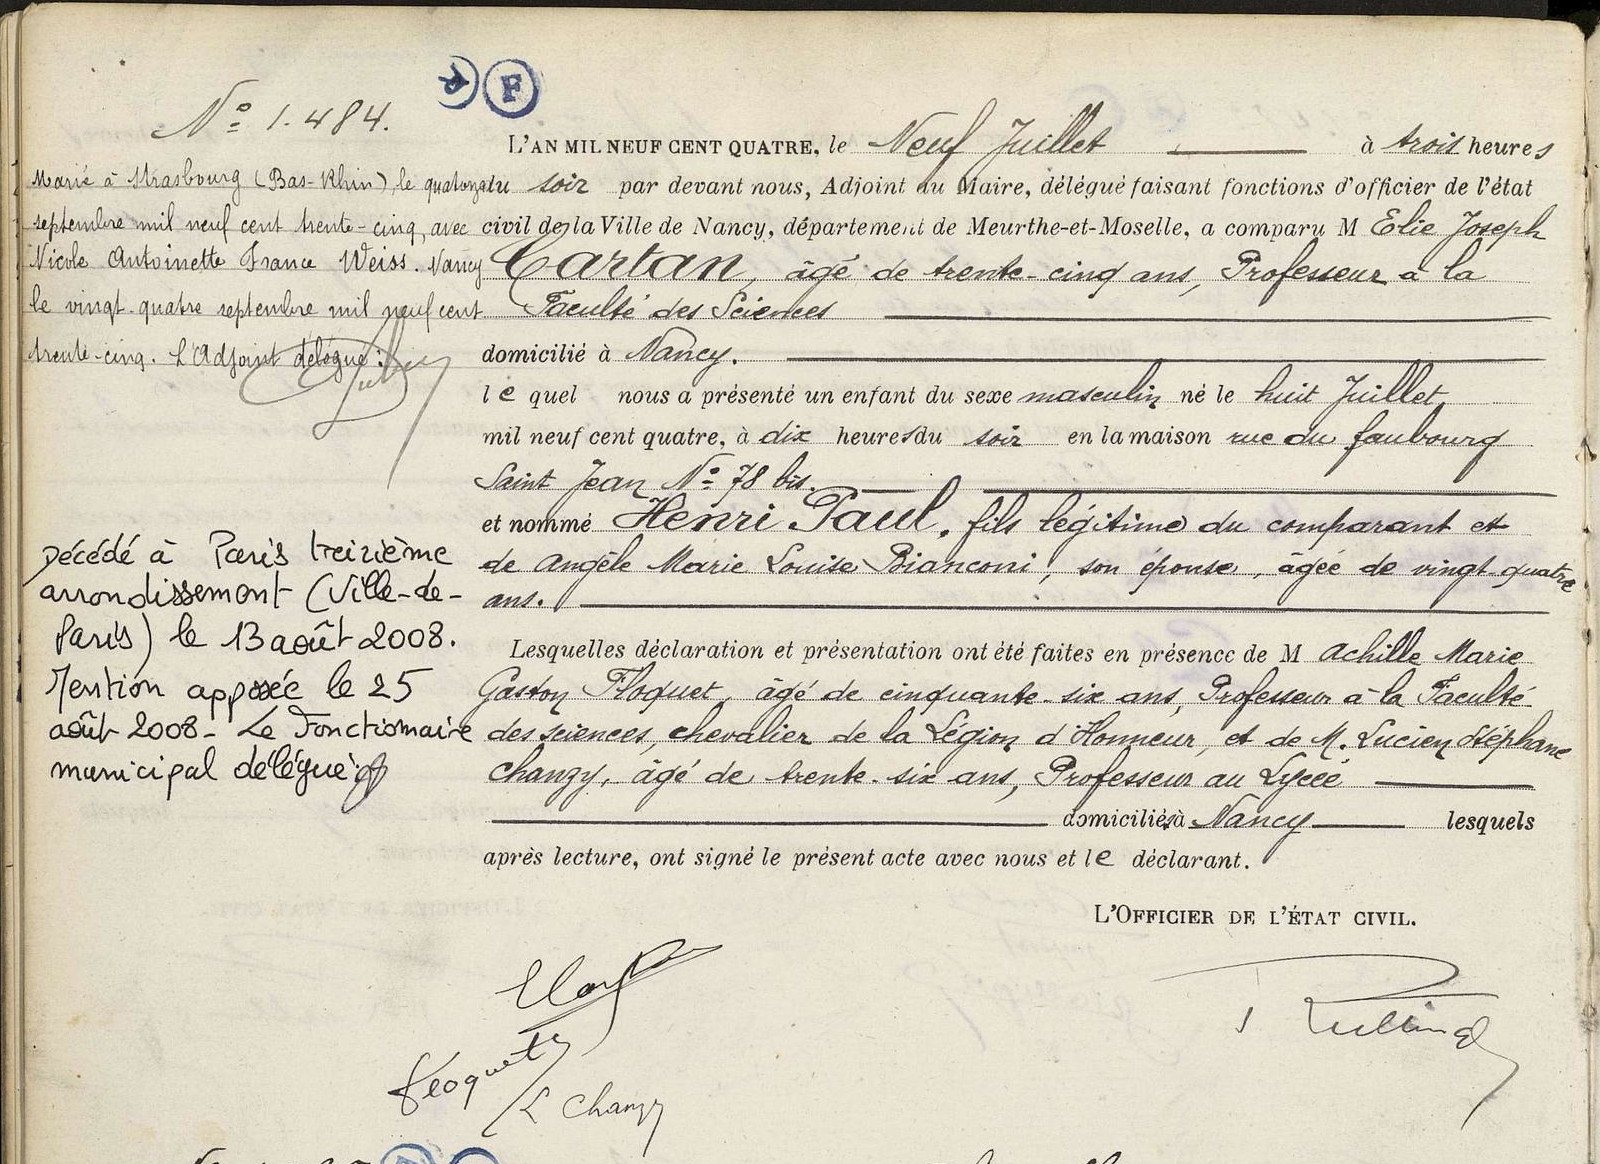 N° 1.484.
F
L'AN MIL NEUF CENT QUATRE, le Neuf Juillet à trois heures
du soir par devant nous, Adjoint au Maire, délégué faisant fonctions d'officier de l'état
civil de la Ville de Nancy, département de Meurthe-et-Moselle, a comparu M Elie Joseph
Cartan, âgé de trente-cinq ans, Professeur à la
Faculté des Sciences
domicilié à Nancy.
le quel nous a présenté un enfant du sexe masculin né le huit Juillet
mil neuf cent quatre, à dix heures du soir en la maison rue du faubourg
Saint Jean N° 78 bis.
et nommé Henri Paul, fils légitime du comparant et
de Angèle Marie Louise Bianconi, son épouse, âgée de vingt-quatre
ans.
Lesquelles déclaration et présentation ont été faites en présence de M Achille Marie
Gaston Floquet, âgé de cinquante-six ans, Professeur à la Faculté
des sciences, chevalier de la Légion d'Honneur, et de M. Lucien Stéphane
Chanzy, âgé de trente-six ans, Professeur au Lycée
domiciliés à Nancy lesquels
après lecture, ont signé le présent acte avec nous et le déclarant.
L'OFFICIER DE L'ÉTAT CIVIL.
Marié à Strasbourg (Bas-Rhin), le quatorze
septembre mil neuf cent trente-cinq, avec
Nicole Antoinette France Weiss. Nancy
le vingt-quatre septembre mil neuf cent
trente-cinq. L'Adjoint délégué:
Décédé à Paris treizième
arrondissement (Ville-de-
Paris) le 13 août 2008.
Mention apposée le 25
août 2008- Le Fonctionnaire
municipal délégué
Floquet
L Chanzy